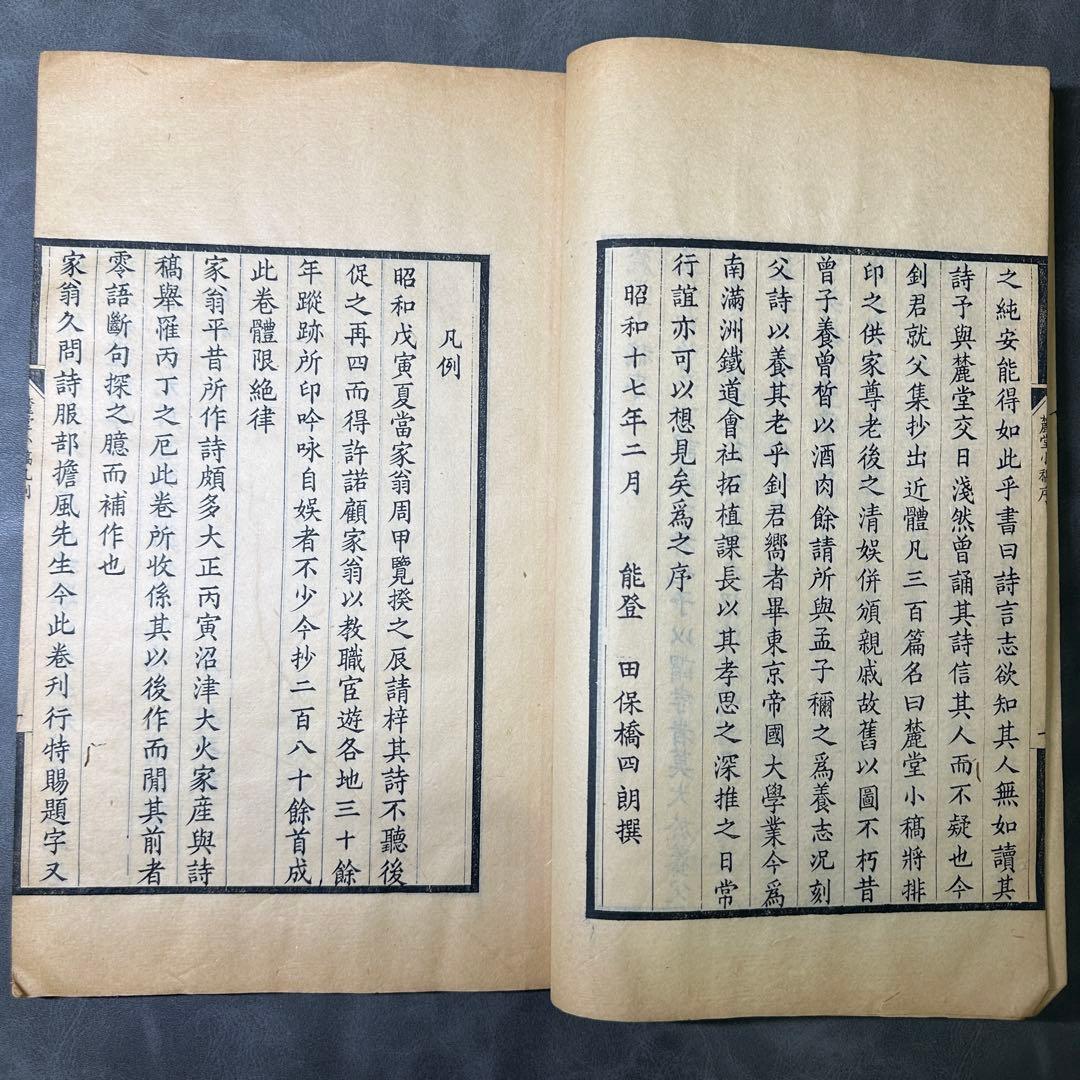 之純安能得如此乎書曰詩言志欲知其人無如讀其
詩予與麓堂交日淺然曾誦其詩信其人而不疑也今
釗君就父集抄出近體凡三百篇名曰麓堂小稿將排
印之供家尊老後之清娛併頒親戚故舊以圖不朽昔
曾子養曾皙以酒肉餘請所與孟子稱之爲養志況刻
父詩以養其老乎釗君嚮者畢東京帝國大學業今爲
南滿洲鐵道會社拓植課長以其孝思之深推之日常
行誼亦可以想見矣為之序
昭和十七年二月 能登 田保橋四朗撰
麓堂小稿序
凡例
昭和戊寅夏當家翁周甲覽揆之辰請梓其詩不聽後
促之再四而得許諾顧家翁以教職宦遊各地三十餘
年蹤跡所印吟咏自娛者不少今抄二百八十餘首成
此卷體限絶律
家翁平昔所作詩頗多大正丙寅沼津大火家産與詩
稿舉罹丙丁之厄此卷所收係其以後作而閒其前者
零語斷句探之臆而補作也
家翁久問詩服部擔風先生今此卷刊行特賜題字又